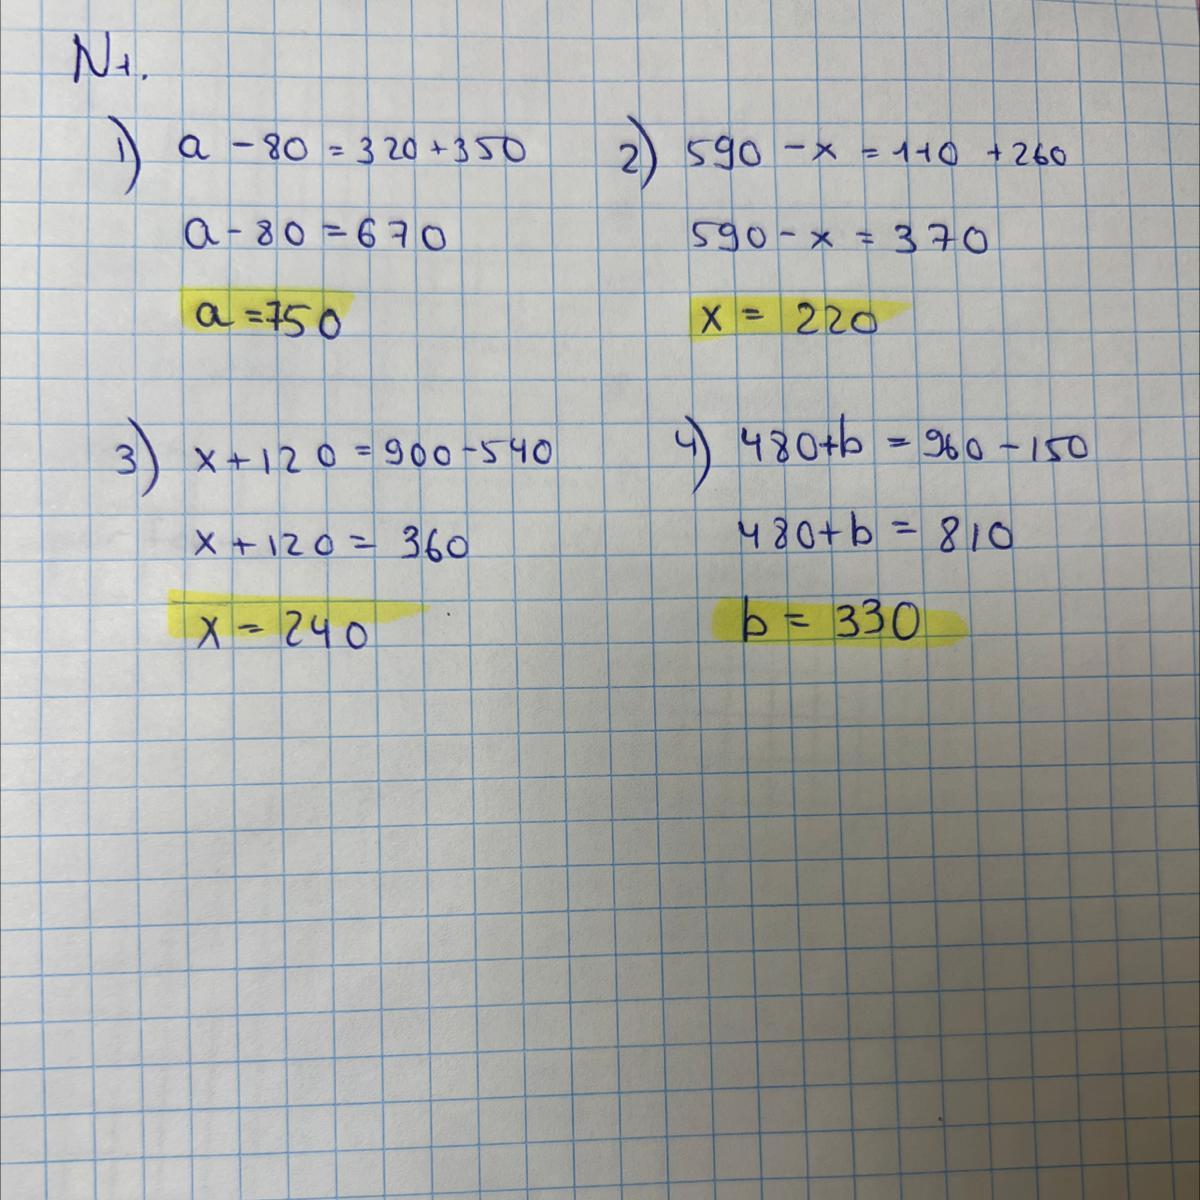 N1.
1) a - 80 = 320 + 350
a - 80 = 670
a = 750
2) 590 - x = 110 + 260
590 - x = 370
x = 220
3) x + 120 = 900 - 540
x + 120 = 360
x = 240
4) 480 + b = 960 - 150
480 + b = 810
b = 330